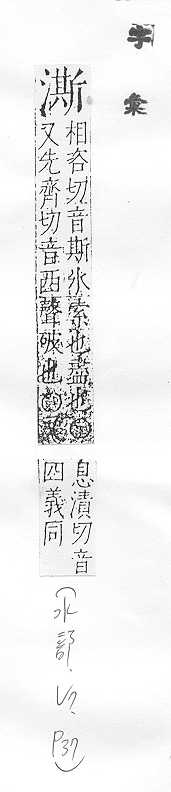 字彙
澌
相咨切音斯氷索也盡也
又先齊切音西聲破也
息漬切音
四義同
(水部.
P37)